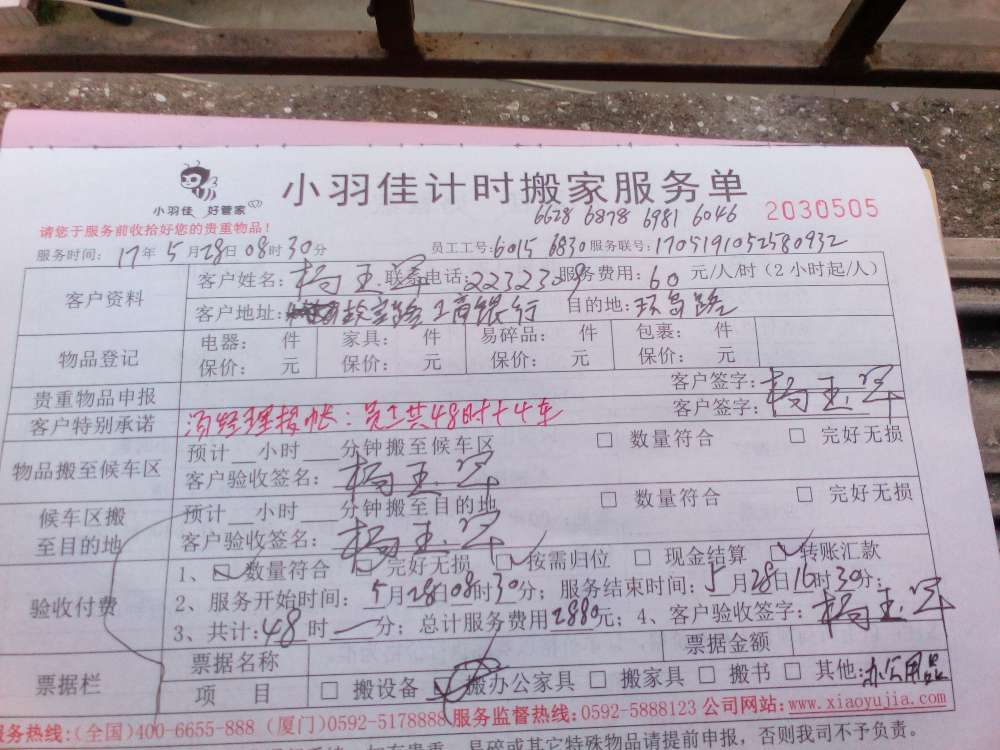 小羽佳 好管家
小羽佳计时搬家服务单
6628 6878 6981 6046
2030505
请您于服务前收拾好您的贵重物品!
服务时间: 17年5月28日08时30分 员工工号: 6015 6830 服务联号: 1705191052580932
客户资料
客户姓名: 杨玉军 联系电话: 2232329 服务费用: 60 元/人/时(2小时起/人)
客户地址: 工商银行 目的地: 环岛路
物品登记
电器: 件 家具: 件 易碎品: 件 包裹: 件
保价: 元 保价: 元 保价: 元 保价: 元
贵重物品申报 客户签字: 杨玉军
客户特别承诺 汤经理接帐: 员工共48时+4车 客户签字:
物品搬至候车区
预计__小时___分钟搬至候车区 □ 数量符合 □ 完好无损
客户验收签名: 杨玉军
候车区搬至目的地
预计__小时___分钟搬至目的地 □ 数量符合 □ 完好无损
客户验收签名: 杨玉军
验收付费
1、☑数量符合 □ 完好无损 ☑按需归位 □ 现金结算 ☑转账汇款
2、服务开始时间: 5月28日08时30分; 服务结束时间: 5月28日16时30分;
3、共计: 48时—分; 总计服务费用2880元; 4、客户验收签字: 杨玉军
票据栏
票据名称 票据金额
项目 □ 搬设备 ☑搬办公家具 □ 搬家具 □ 搬书 □ 其他: 办公用品
服务热线:(全国)400-6655-888 (厦门)0592-5178888 服务监督热线: 0592-5888123 公司网站: www.xiaoyujia.com
易碎或其它特殊物品请提前申报,否则我司不予负责。